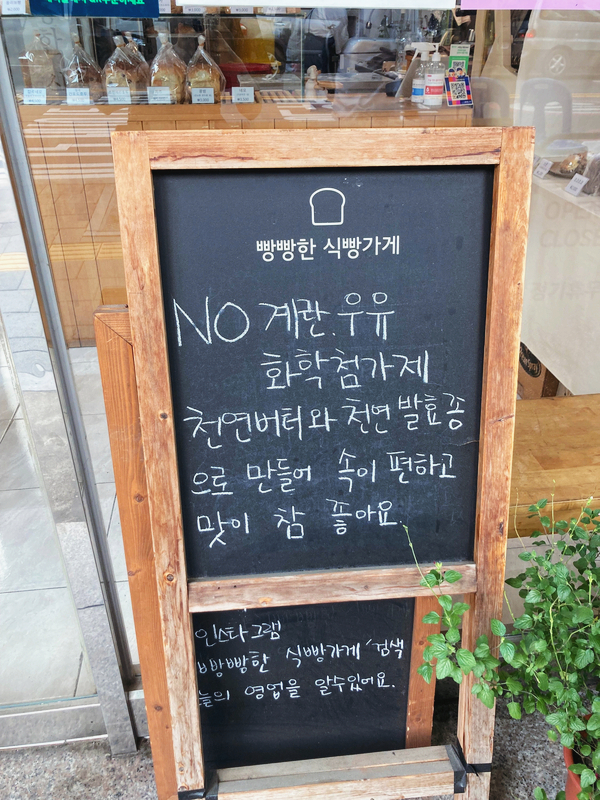 빵빵한 식빵가게
NO 계란.우유
화학첨가제
천연버터와 천연발효종
으로 만들어 속이 편하고
맛이 참 좋아요.
인스타그램
빵빵한 식빵가게 '검색
늘의 영업을 알수있어요.